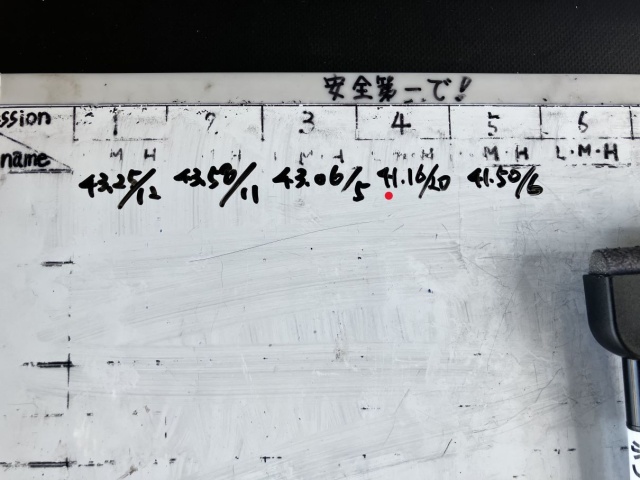 安全第一で!
ssion 1 2 3 4 5 6
name M H M H M・H M・H M・H L・M・H
43.25/12 43.58/11 43.06/5 41.16/20 41.50/6